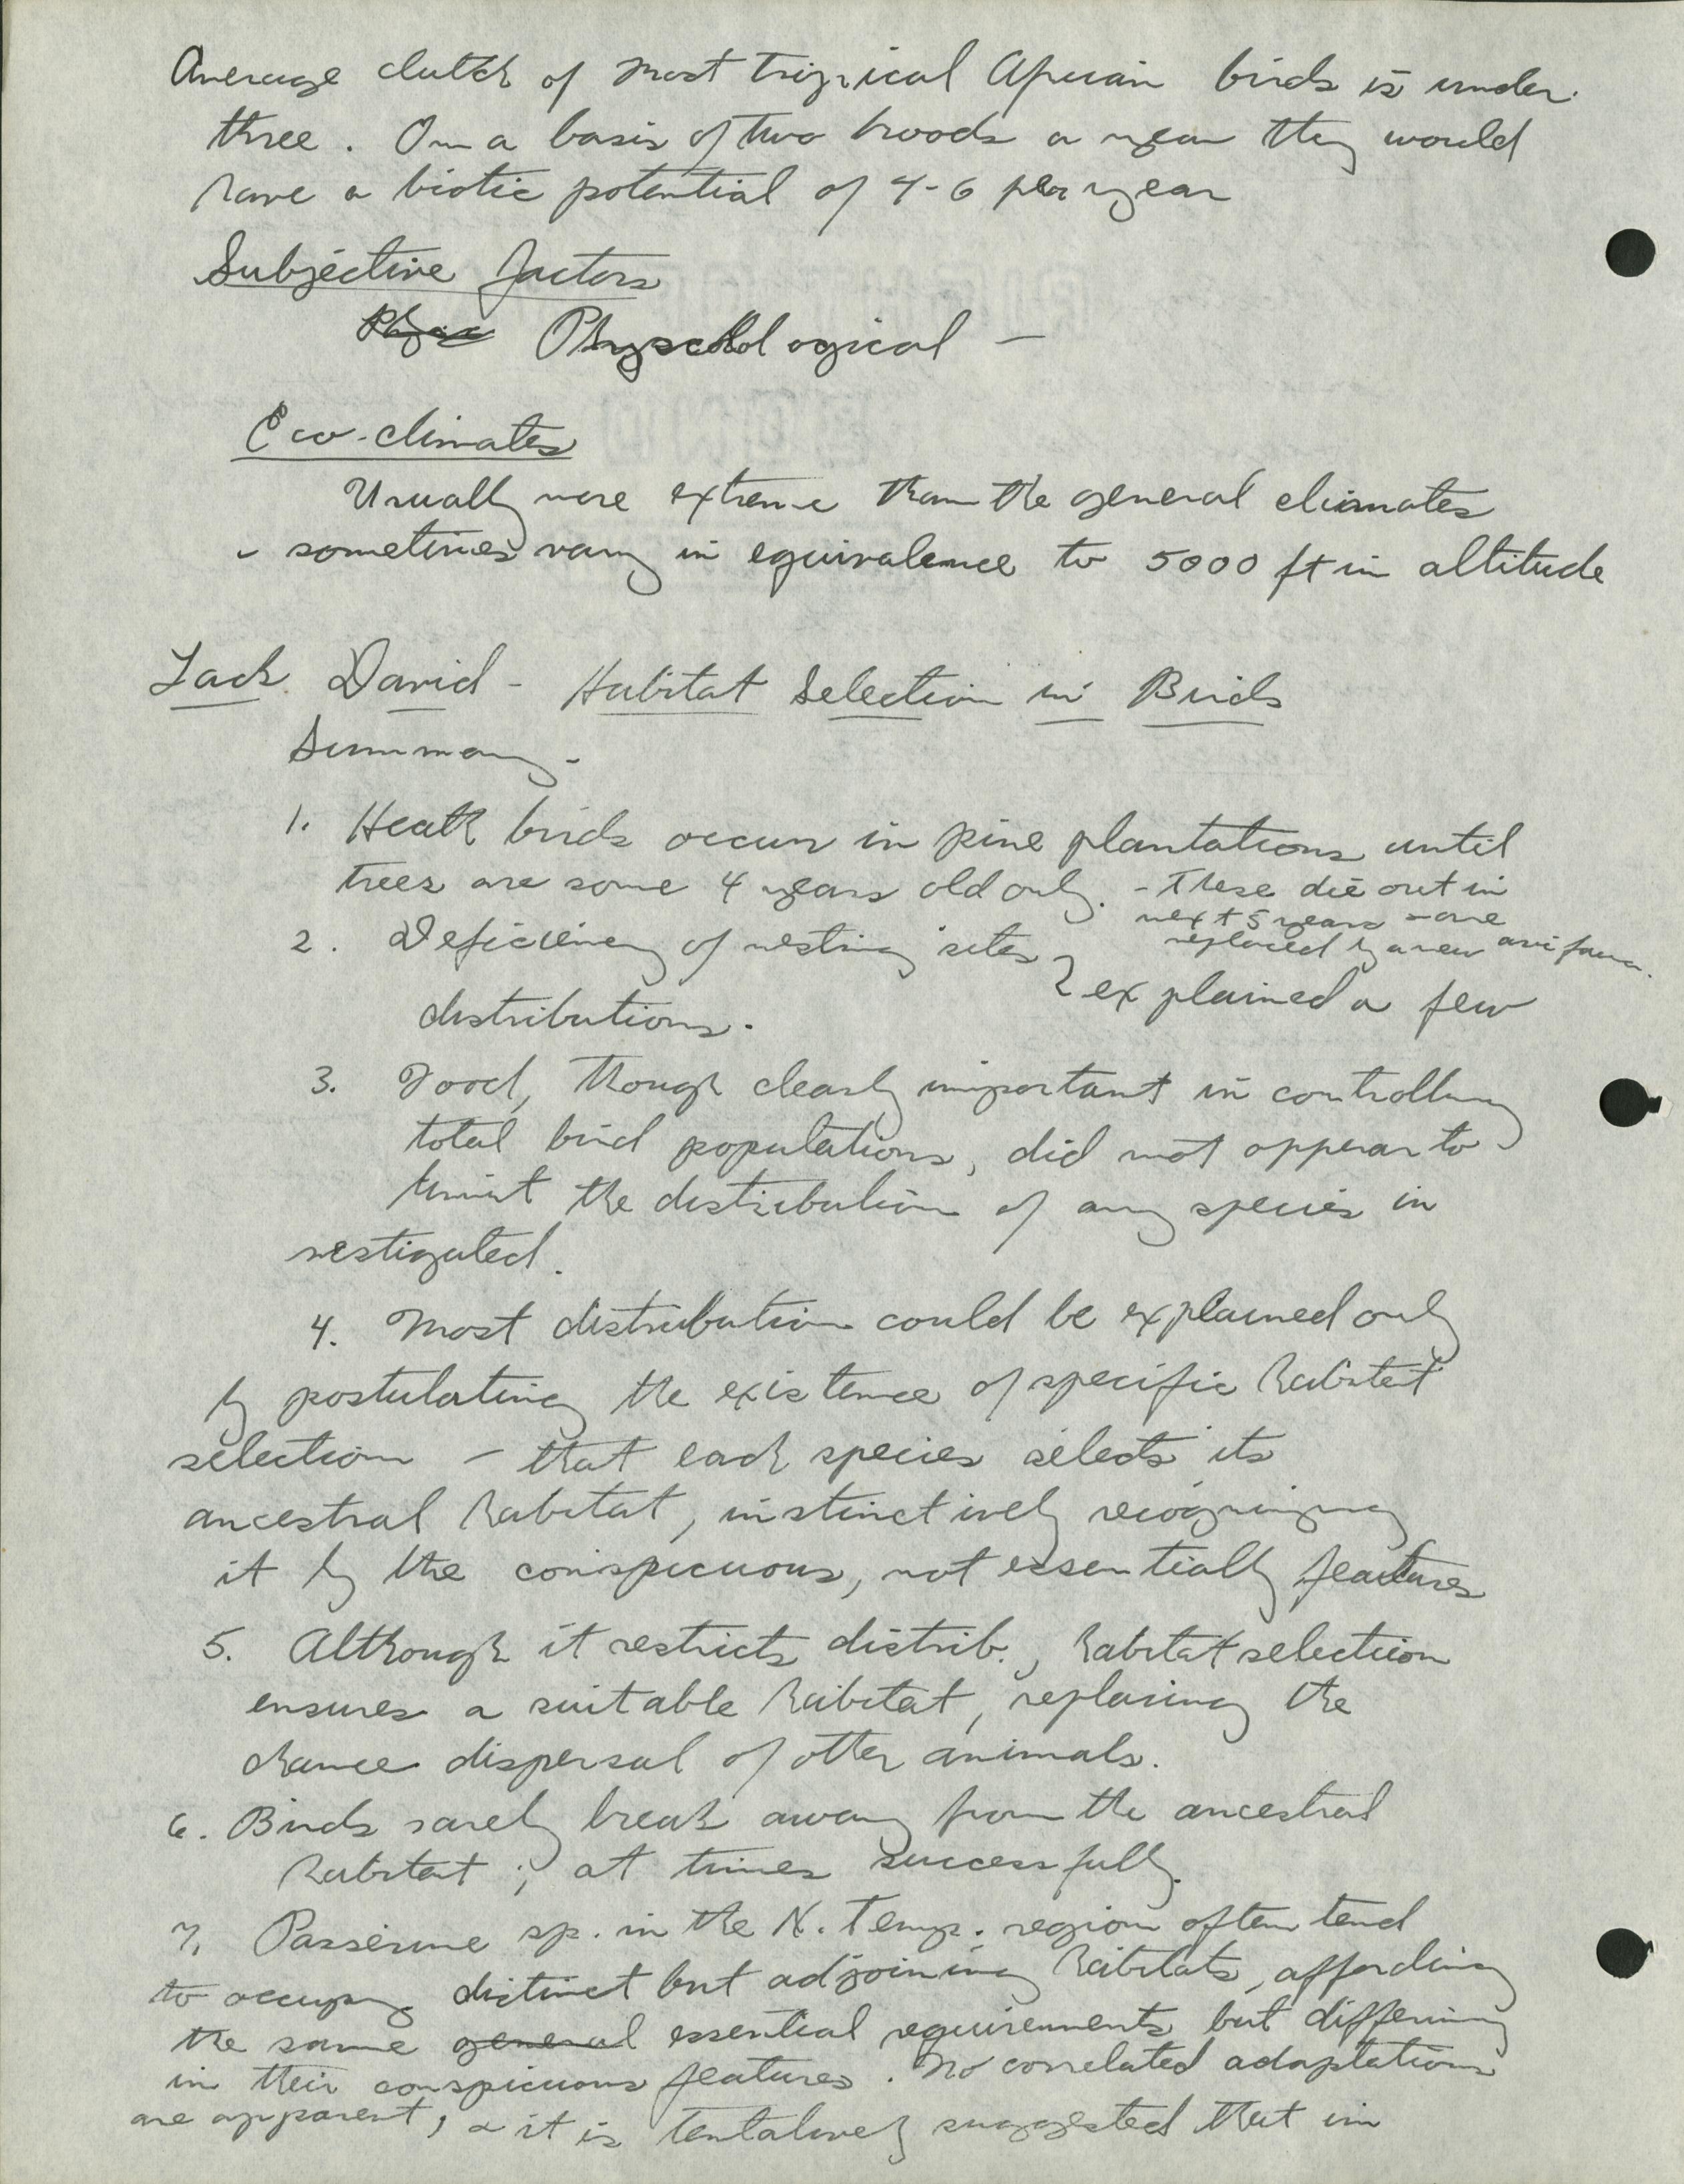 Average clutch of most tropical African birds is under
three. On a basis of two broods a year they would
have a biotic potential of 4-6 per year
Subjective factors
Physcological —
Eco-climates
Usually more extreme than the general climates
& sometimes vary in equivalence to 5000 ft in altitude
Lack David - Habitat Selection in Birds
Summary -
1. Heath birds occur in pine plantations until
trees are some 4 years old only. - These die out in
next 5 years & are
replaced by a new avifauna.
2. Deficiency of nesting sites
explained a few
distributions.
3. Food, though clearly important in controlling
total bird populations, did not appear to
limit the distribution of any species in
vestigated.
4. Most distribution could be explained only
by postulating the existence of specific habitat
selection — that each species selects its
ancestral habitat, instinctively recognizing
it by the conspicuous, not essentially features
5. Although it restricts distrib., habitat selection
ensures a suitable habitat, replacing the
chance dispersal of other animals.
6. Birds rarely break away from the ancestral
habitat; at times successfully.
7. Passerine sp. in the N. Temp. region often tend
to occupy distinct but adjoining habitats, affording
the same general essential requirements but differing
in their conspicuous features. No correlated adaptations
are apparent, & it is tentatively suggested that in